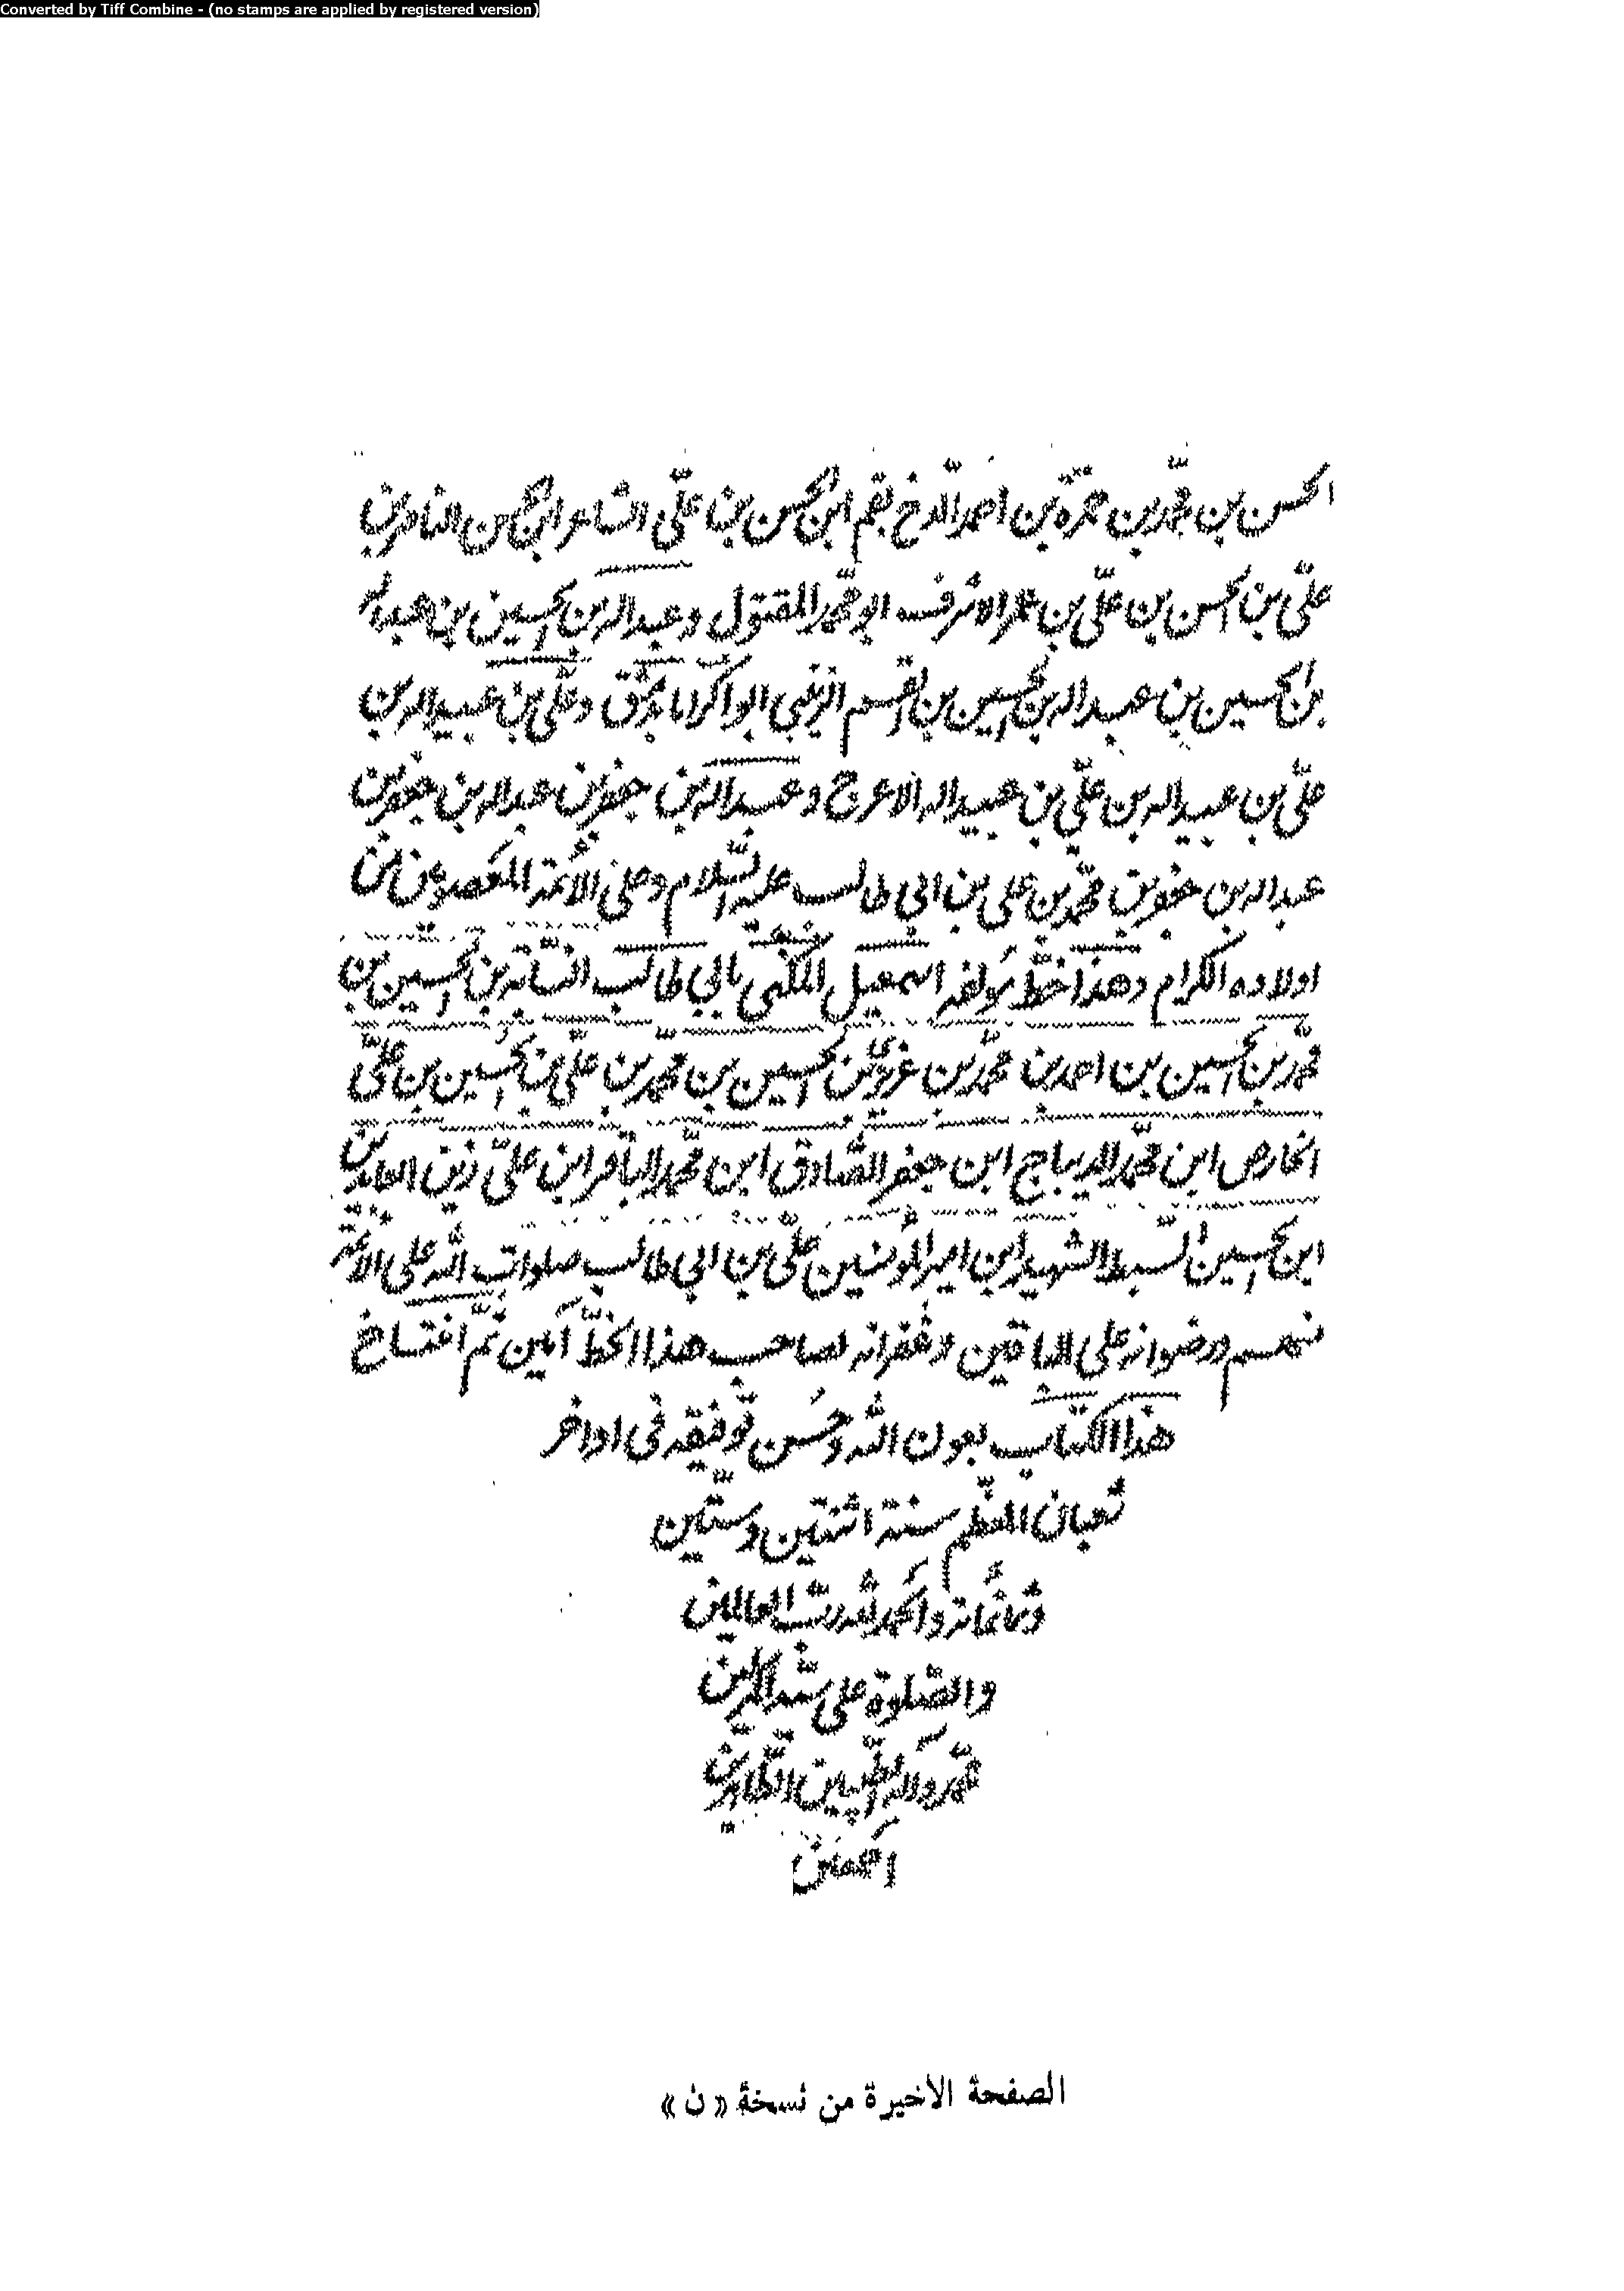 Converted by Tiff Combine - (no stamps are applied by registered version)
الحسن بن محمد بن حمزة بن احمد الدخ بقم ابن الحسن بن علی الشاعر ابن الحسن الناصر بن
علی بن الحسن بن علی بن عمر الاشرف ابو محمد المقتول و عبد الله بن الحسين بن عبد الله
بن الحسين بن عبد الله بن الحسين بن القسم الزینبی ابوا وعلی بن عبيد الله بن
علی بن عبيد الله بن علی بن عبيد الله الاعرج و عبد الله بن جعفر بن عبد الله بن جعفر بن
عبد الله بن جعفر بن محمد بن علی بن ابی طالب علیه السّلام وعلی الائمة المعصومین من
اولاده الکرام وهذا خطّ مؤلفه اسمعیل المکنّی بابی طالب النسّابة بن الحسین بن
محمد بن الحسین بن احمد بن محمد بن عزیز بن الحسین بن محمد بن علی بن الحسین بن علیّ
الخارص ابن محمّد الدیباج ابن جعفر الصّادق ابن محمّد الباقر ابن علیّ زین العابدین
ابن الحسین السبط الشهید ابن امیر المؤمنین علیّ بن ابی طالب صلوات الله علی الائمّة
منهم ورضوانه علی الباقین وغفرانه لصاحب هذا الخطّ آمین تمّ
هذا الکتاب بعون الله وحُسن توفیقه فی اواخر
شعبان المعظّم سنة اثنتین وستّین
وثمانمائة والحمد لله ربّ العالمین
والصّلوة علی سیّد المرسلین
محمّد وآله الطّیّبین الطّاهرین
اجمعین
الصفحة الأخيرة من نسخة «ن»